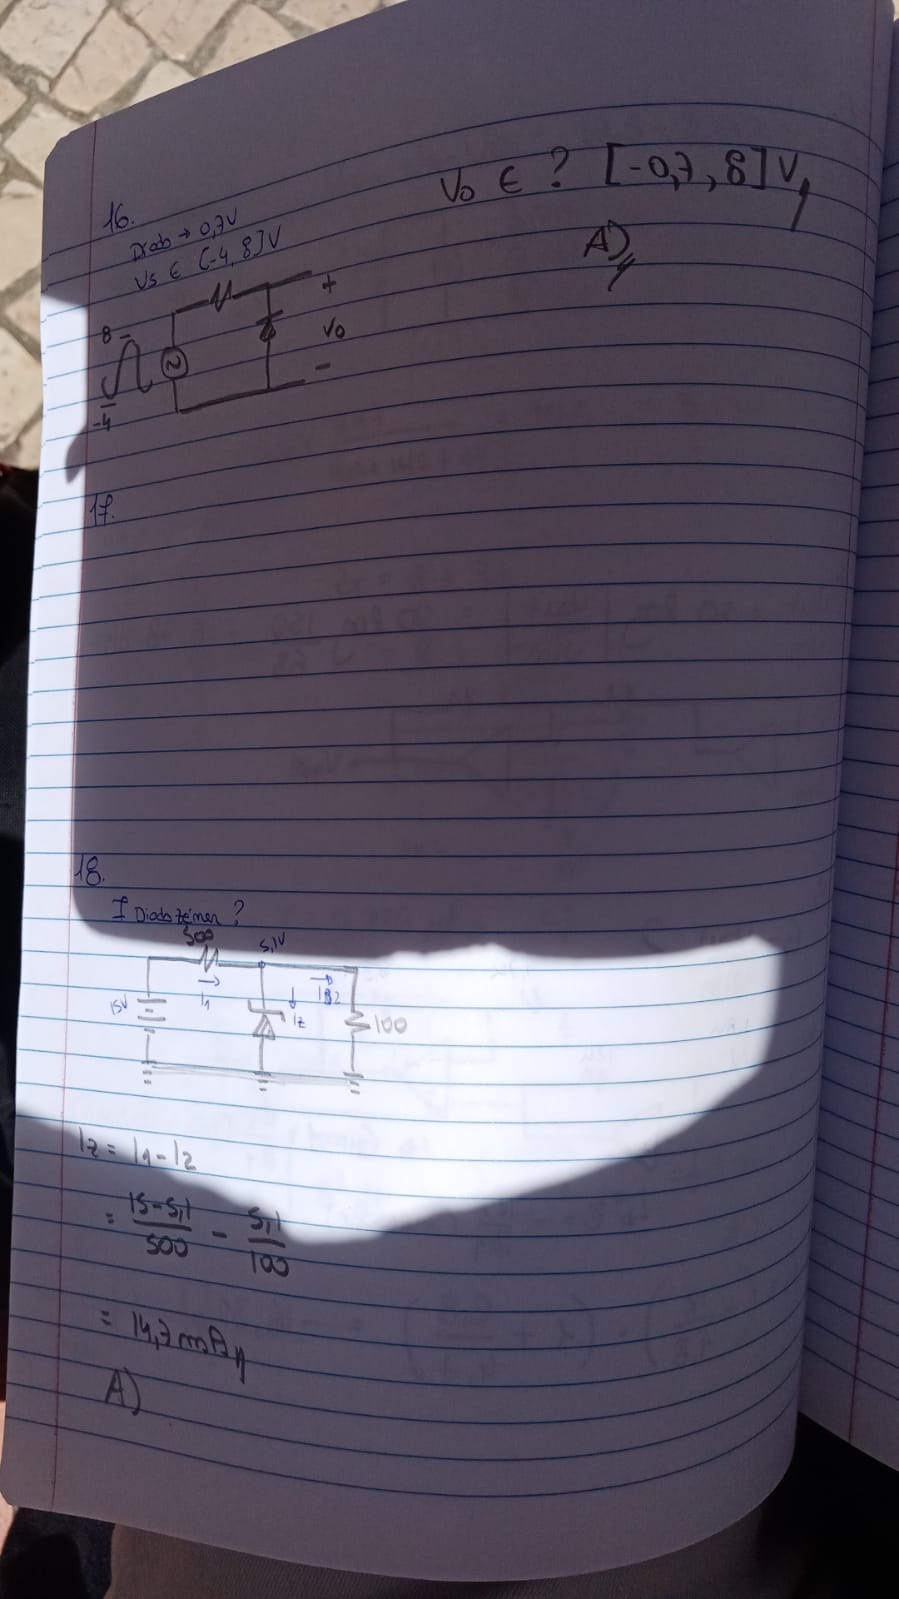 16.
Díodo → 0,7V
Vs ∈ [-4, 8] V
Vo ∈ ? [-0,7, 8] V
A)
8
-4
+
Vo
-
17.
18.
I Díodo zéner?
500
5,1V
15V
I1
Iz
100
Iz = I1 - I2
= 15-5,1/500 - 5,1/100
= 14,7 mA
A)